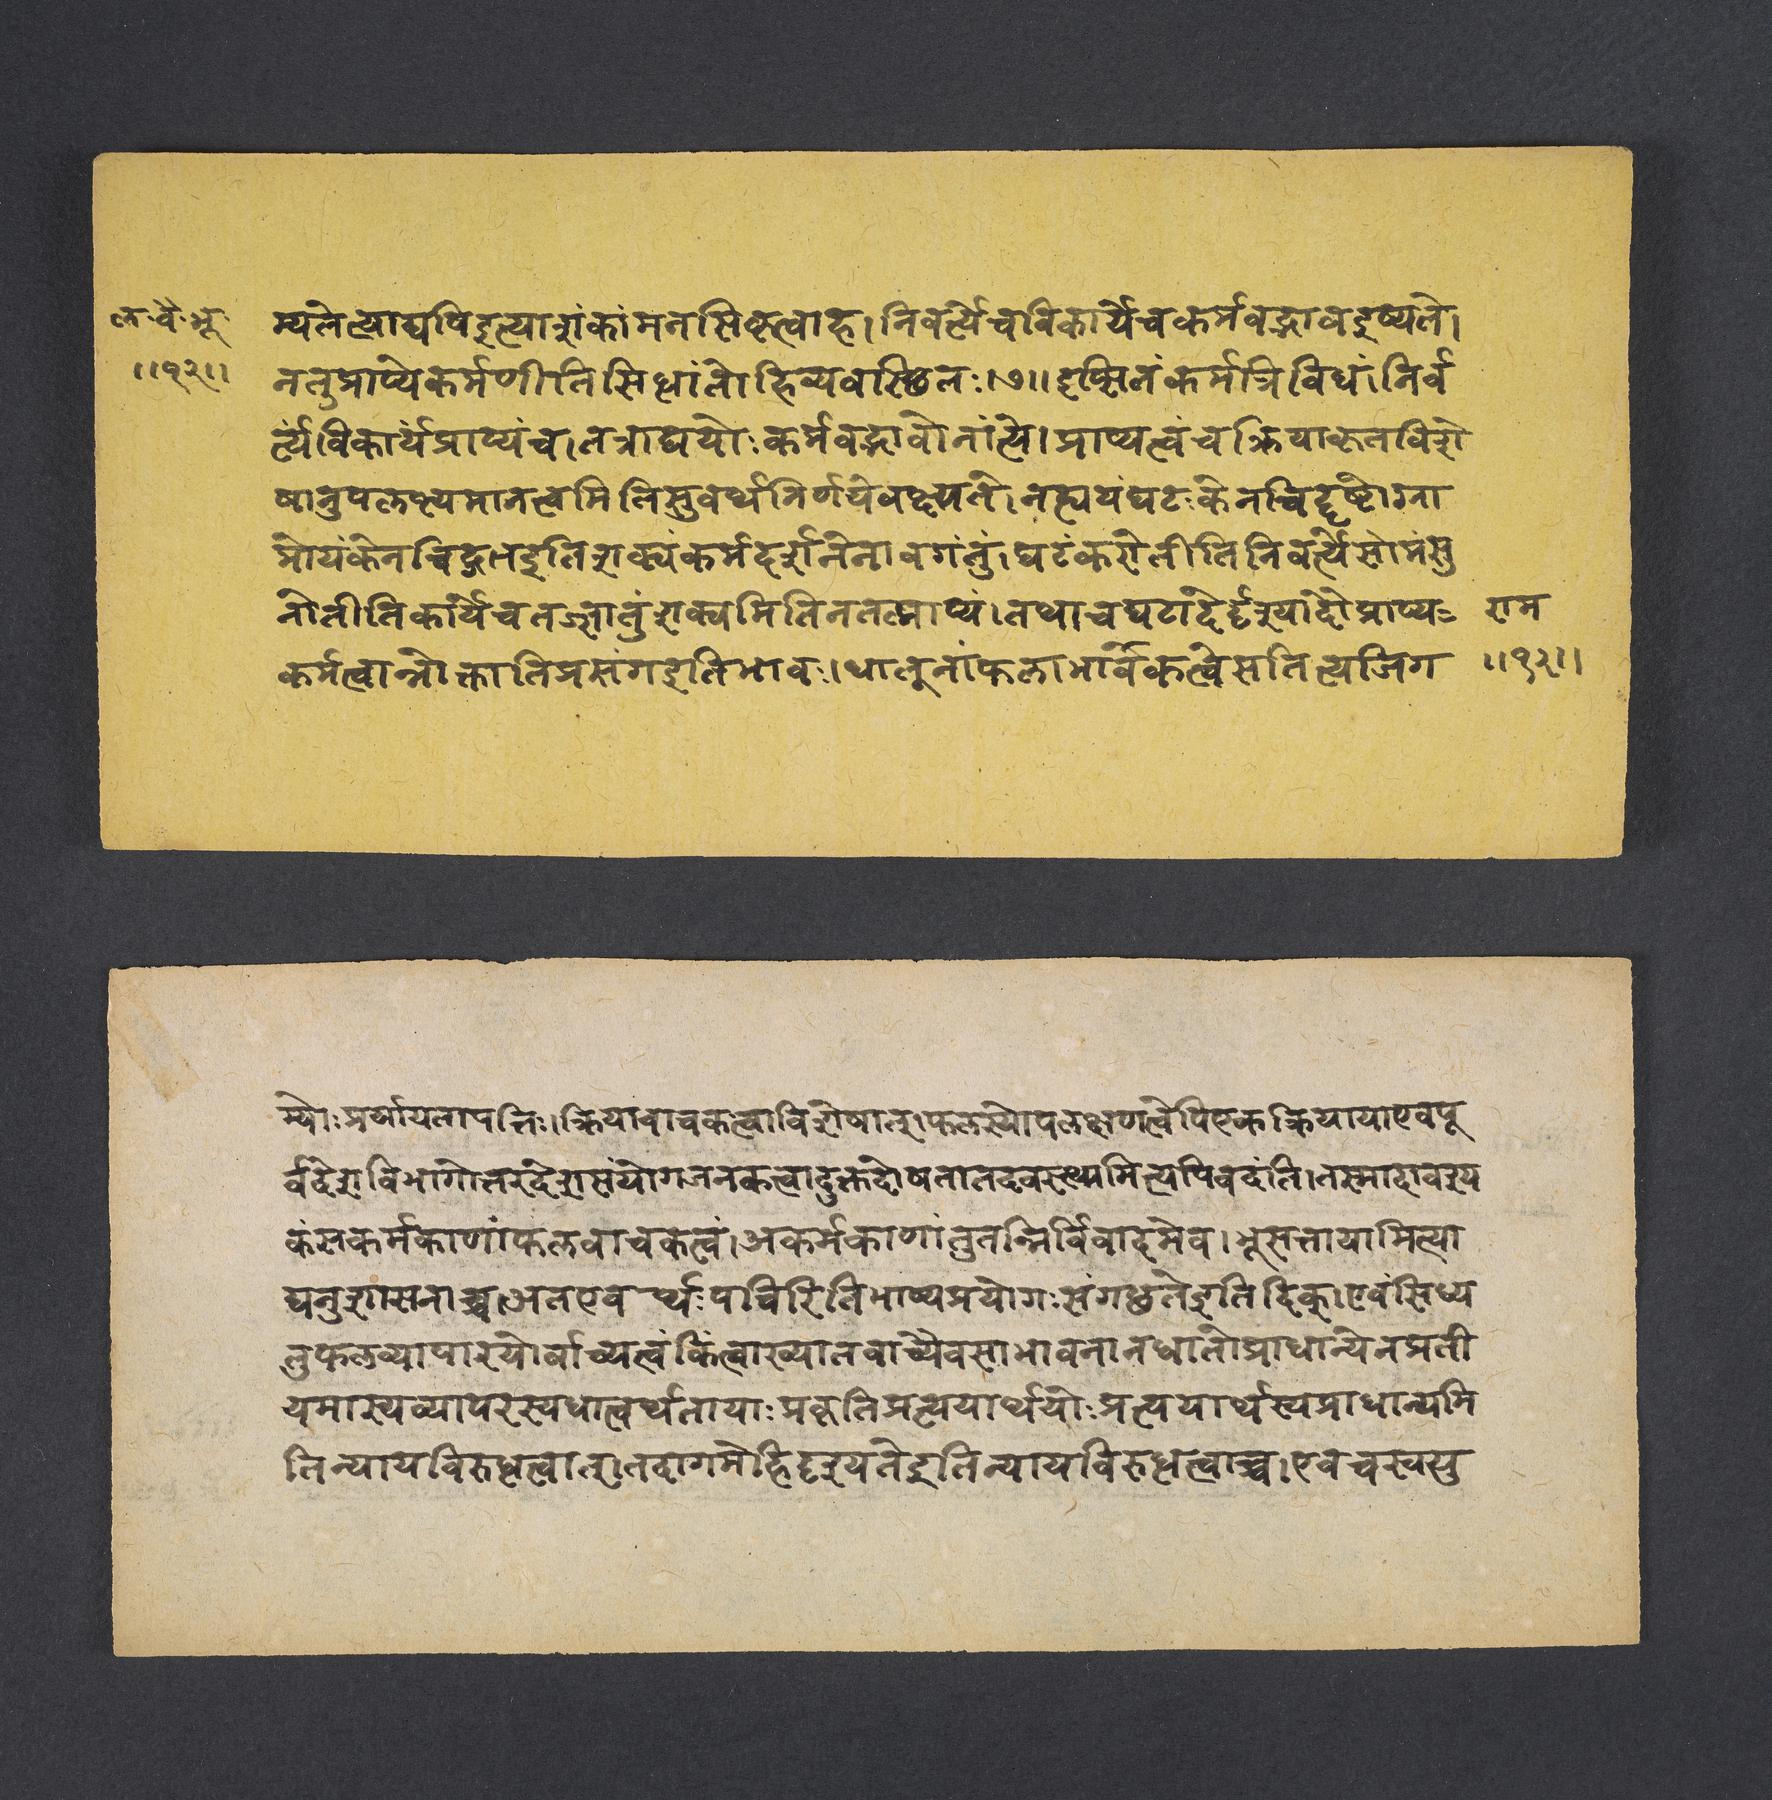 ल॰ वै॰ भू॰
॥१२॥
म्यतेत्याद्यपिइत्याशंकांमनसिकृत्वाह।निवर्त्येचविकार्येचकर्मवद्भावइष्यते।
नतुप्राप्येकर्मणीतिसिधांतोहिव्यवस्छितः।७॥ईप्सितंकर्मत्रिविधं।निर्व
र्त्यंविकार्यंप्राप्यंच।तत्राद्ययोःकर्मवद्भावोनांत्ये।प्राप्यत्वंचक्रियाकृतविशे
षानुपलभ्यमानत्वमितिसुवर्थनिर्णयेवक्ष्यते।नह्ययंघटःकेनचिद्दृष्टोग्रा
मोयंकेनचिद्गतइतिशक्यंकर्मदर्शनेनावगंतुं।घटंकरोतीतिनिवर्त्येसोमंसु
नोतीतिकार्येचतज्ज्ञातुंशक्यमितिनतत्प्राप्यं।तथाचघटादेर्दृश्यादौप्राप्य-
कर्मत्वान्नोक्तातिप्रसंगइतिभावः।धातूनांफलाभावकत्वेसतित्यजिग
राम
॥१२॥
म्योःपर्यायतापत्तिः।क्रियावाचकत्वाविशेषात्।फलस्योपलक्षणत्वेपिएकक्रियायाएवपू
र्वदेशविभागोत्तरदेशसंयोगजनकत्वादुक्तदोषतातदवस्थ्यमित्यपिवदंति।तस्मादावश्य
कंसकर्मकाणांफलवाचकत्वं।अकर्मकाणांतुतन्निर्विवादमेव।भूसत्तायामित्या
द्यनुशासनाच्च।अतएव र्थ्यःपचिरितिभाष्यप्रयोगःसंगछतेइतिदिक्।एवंसिध्य
तुफलव्यापारयोर्वाच्यत्वंकिंत्वाख्यातवाच्यैवसाभावनानधातोप्राधान्येनप्रती
यमास्यव्यापरस्यधात्वर्थतायाःप्रकृतिप्रत्ययार्थयोःप्रत्ययार्थस्यप्राधान्यमि
तिन्यायविरुधत्वात्।तदागमेहिदृश्यतेइतिन्यायविरुधत्वाच्च।एवंचस्वसु